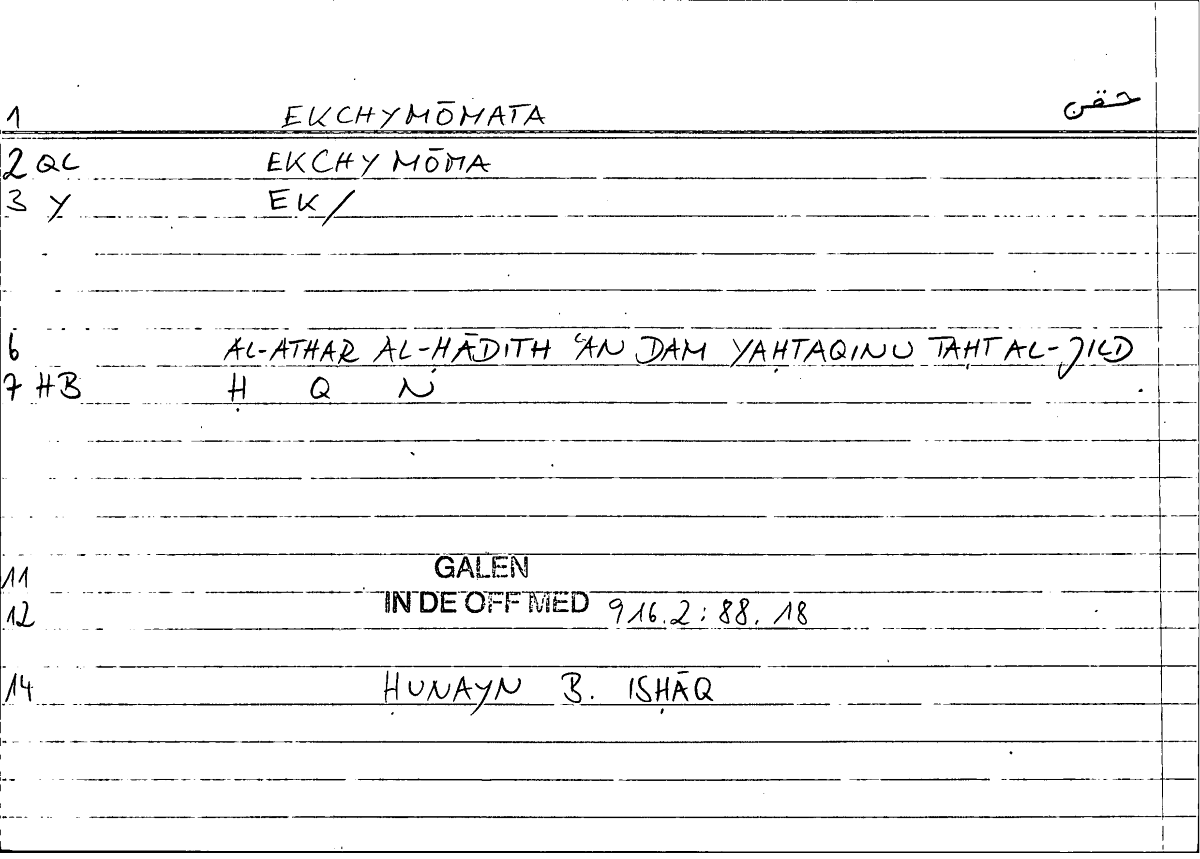 1 EKCHYMŌMATA حقن
2 QC EKCHYMŌMA
3 Y EK/
6 AL-ATHAR AL-ḤĀDITH ʿAN DAM YAḤTAQINU TAḤT AL-JILD
7 HB Ḥ Q N
11 GALEN
12 IN DE OFF MED 916.2:88.18
14 ḤUNAYN B. ISḤĀQ